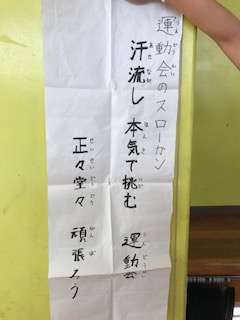 運動会のスローガン
汗流し 本気で挑む 運動会
正々堂々 頑張ろう